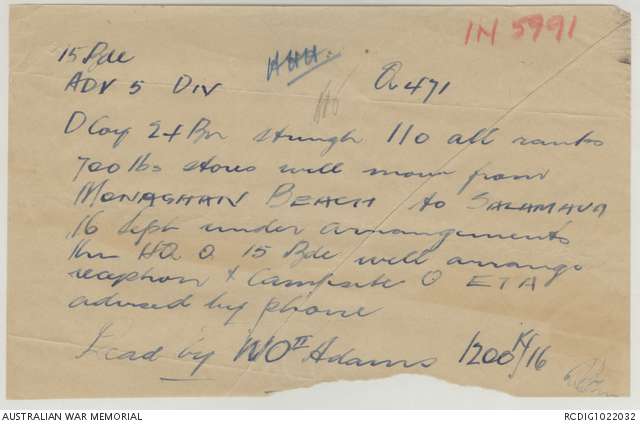 IN 5991
15 Bde
ADV 5 DIV Q 471
D Coy 24 Bn strength 110 all ranks
700 lbs stores will move from
MONAGHAN BEACH to SALAMAUA
16 Sept under arrangements
this HQ O 15 Bde will arrange
reception & campsite O ETA
advised by phone
Lead by WO II Adams 1200 K/16
AUSTRALIAN WAR MEMORIAL RCDIG1022032